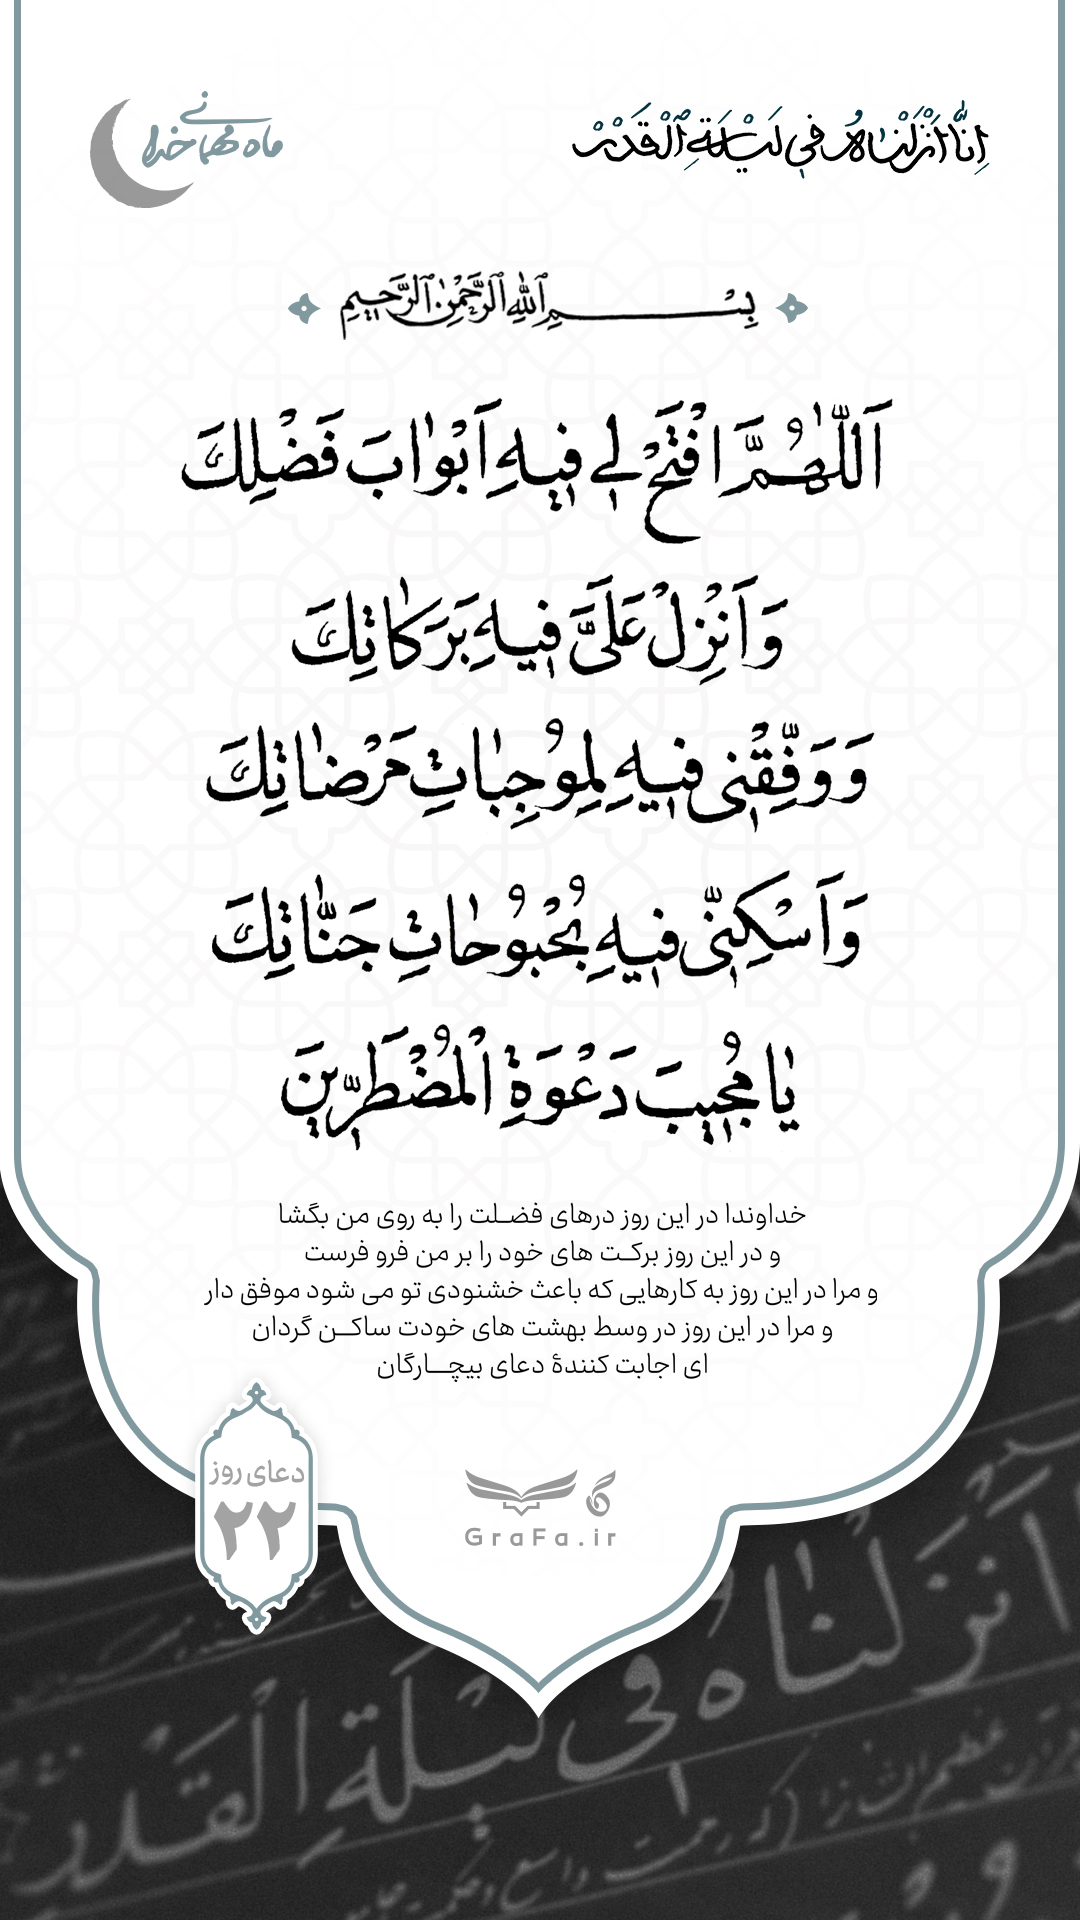 اِنّٰا اَنْزَلْنٰاهُ فِي لَيْلَةِ الْقَدْرِ
ماه مهمانی خدا
بِسْمِ اللّٰهِ الرَّحْمٰنِ الرَّحِيمِ
اَللّٰهُمَّ افْتَحْ لِي فِيهِ اَبْوٰابَ فَضْلِكَ
وَ اَنْزِلْ عَلَيَّ فِيهِ بَرَكٰاتِكَ
وَ وَفِّقْنِي فِيهِ لِمُوجِبٰاتِ مَرْضٰاتِكَ
وَ اَسْكِنِّي فِيهِ بُحْبُوحٰاتِ جَنّٰاتِكَ
يٰا مُجِيبَ دَعْوَةِ الْمُضْطَرِّينَ
خداوندا در این روز درهای فضـلت را به روی من بگشا
و در این روز برکـت های خود را بر من فرو فرست
و مرا در این روز به کارهایی که باعث خشنودی تو می شود موفق دار
و مرا در این روز در وسط بهشت های خودت ساکــن گردان
ای اجابت کنندهٔ دعای بیچــارگان
دعای روز
۲۲
GraFa.ir
اَنْزَلْنٰاهُ فِي لَيْلَةِ الْقَدْرِ
عظیم الشأن
که رحمت واسع و حکمت